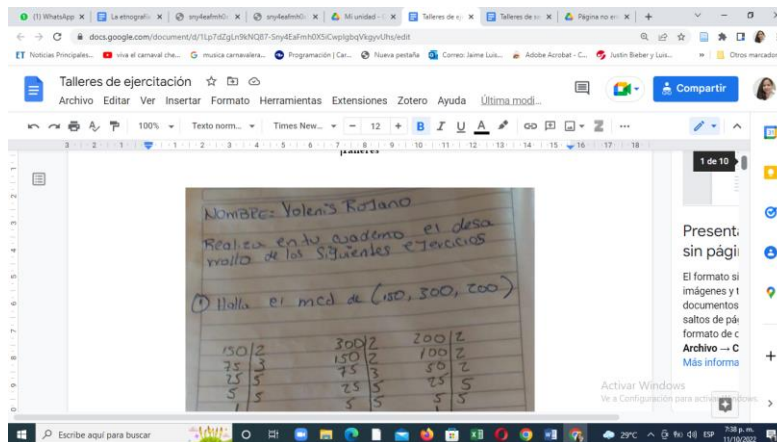 (1) WhatsApp
La etnografí
sny4eafmh0
sny4eafmh0
Mi unidad - G
Talleres de ej
Talleres de se
Página no en
docs.google.com/document/d/1Lp7dZgLn9kNQB7-Sny4EaFmh0X5iCwplgbqVkgyvUhs/edit
Noticias Principales...
viva el carnaval che...
musica carnavalera...
Programación | Car...
Nueva pestaña
Correo: Jaime Luis...
Adobe Acrobat - C...
Justin Bieber y Luis...
Otros marcador
Talleres de ejercitación
Compartir
Archivo Editar Ver Insertar Formato Herramientas Extensiones Zotero Ayuda Última modi...
100% Texto norm... Times New... - 12 + B I U A
3 2 1 1 2 3 4 5 6 7 8 9 10 11 12 13 14 15 16 17 18
1 de 10
Talleres
NomBRE: Yolenis Rojano
Realiza en tu cuaderno el desa
rrollo de los Siguientes ejercicios
① Halla el mcd de (150, 300, 200)
150|2 300|2 200|2
75|3 150|2 100|2
25|5 75|3 50|2
5|5 25|5 25|5
1 5|5 5|5
Present
sin pági
El formato si
imágenes y t
documentos
saltos de pá
formato de c
Archivo → C
Más informa
Activar Windows
Ve a Configuración para activar Windows.
Escribe aquí para buscar
29°C
ESP
7:38 p. m.
11/10/2022